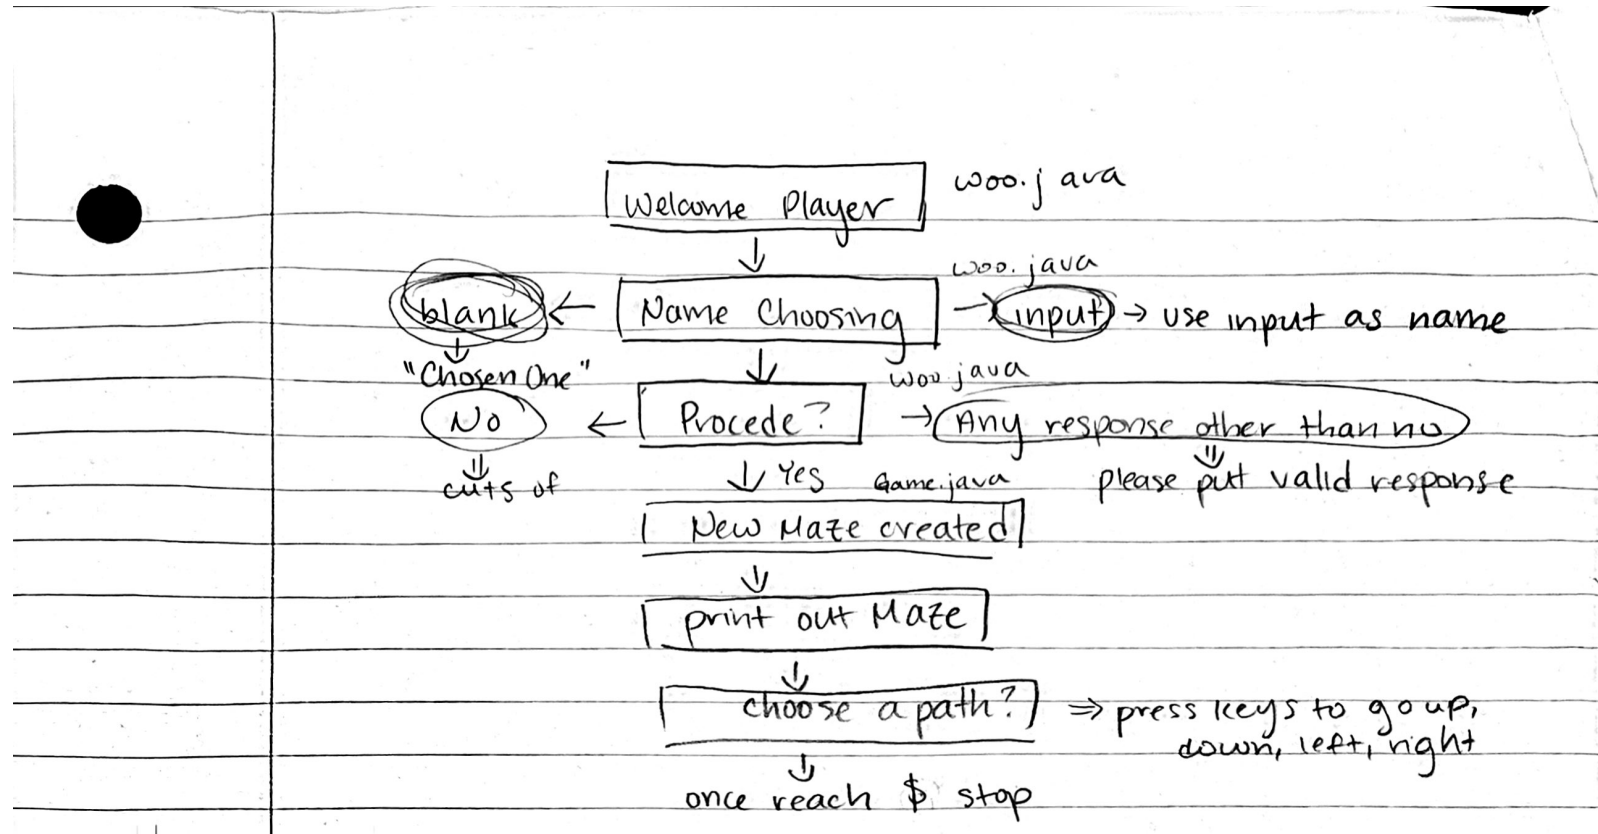 Welcome Player
Woo.java
Woo.java
blank
Name Choosing
input
use input as name
"Chosen One"
Woo.java
No
Procede?
Any response other than no
cuts of
Yes
Game.java
please put valid response
New Maze created
print out Maze
choose a path?
press keys to go up,
down, left, right
once reach $ stop